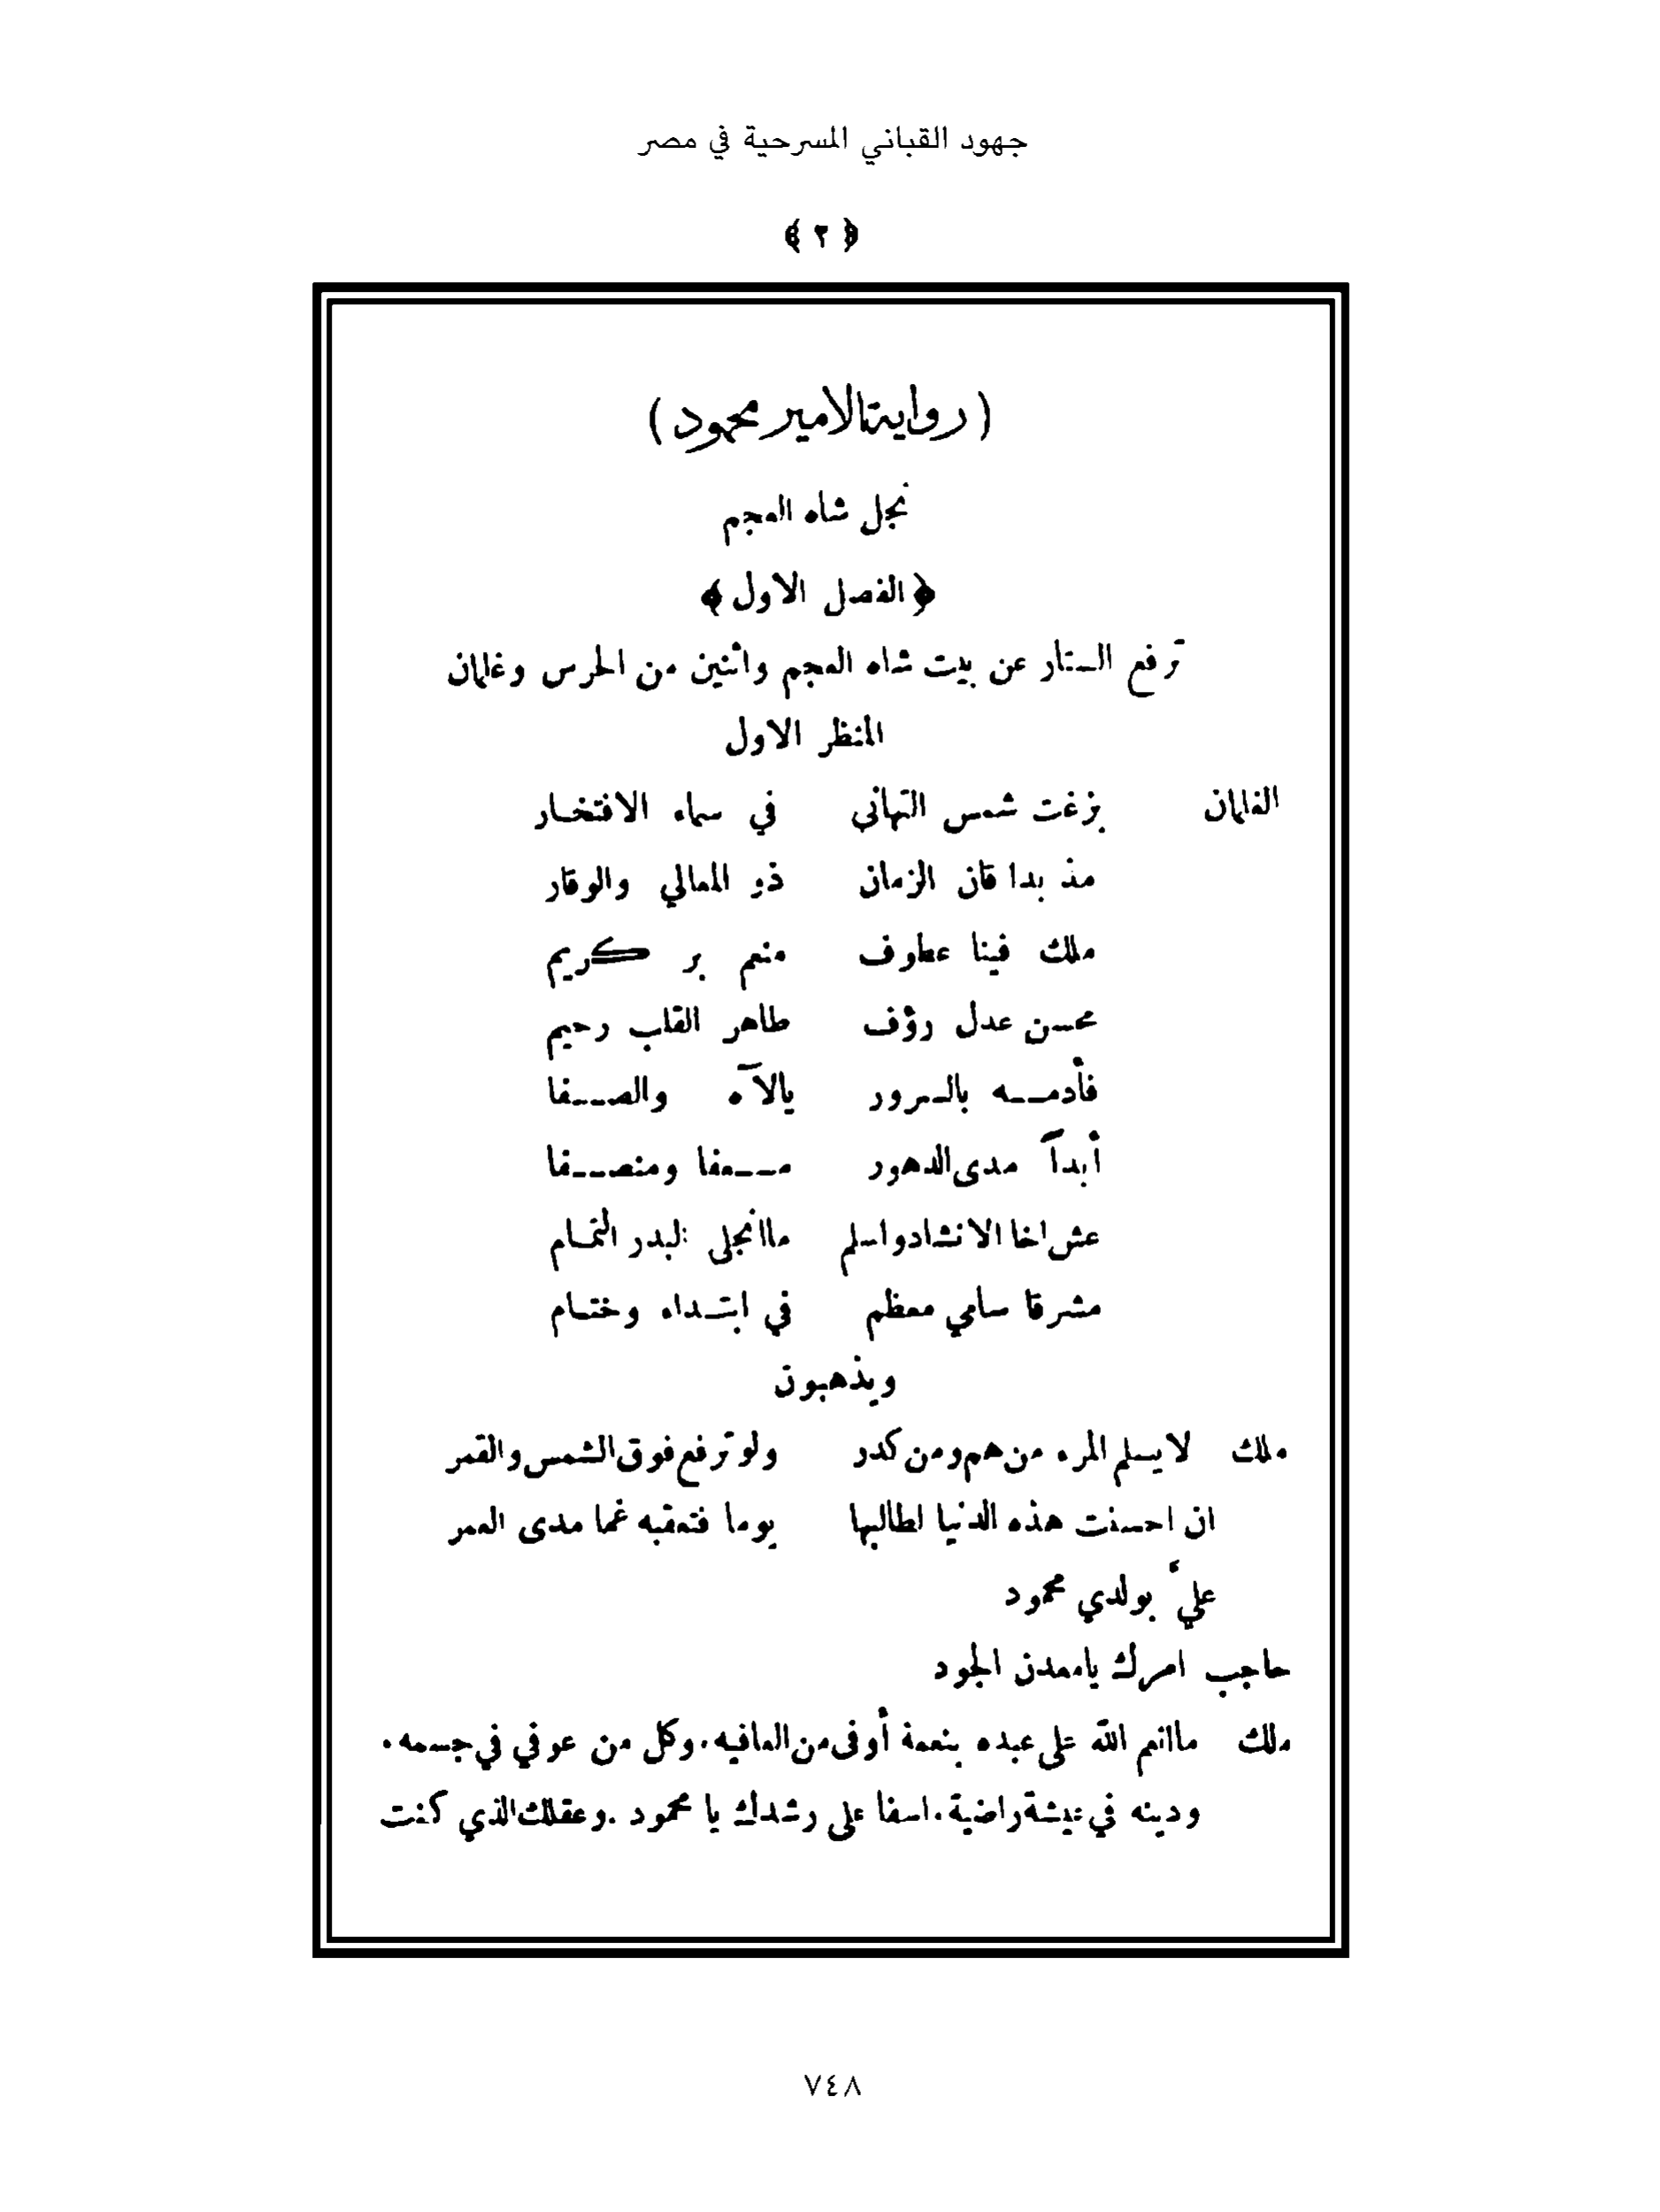 جهود القباني المسرحية في مصر
﴿ ٢ ﴾
( رواية الامير محمود )
نجل شاه العجم
﴿ الفصل الاول ﴾
ترفع الستار عن بيت شاه العجم واثنين من الحرس وغلمان
المنظر الاول
الغلمان بزغت شمس التهاني في سماء الافتخار
مذ بدا قان الزمان ذو المعالي والوقار
ملك فينا عطوف منعم بر كريم
محسن عدل رؤف طاهر القلب رحيم
فأدمه بالسرور يالآه والصفا
أبداً مدى الدهور مسعفا ومنصفا
عش اخا الانشاد واسلم ما انجلى البدر التمام
مشرقا سامي معظم في ابتداء وختام
ويذهبون
ملك لا يسلم المرء من هم ومن كدر ولو ترفع فوق الشمس والقمر
ان احسنت هذه الدنيا لطالبها يوما فتعقبه غما مدى العمر
عليَّ بولدي محمود
حاجب امرك يا معدن الجود
ملك ما انعم الله على عبده بنعمة أوفى من العافيه. وكل من عوفي في جسمه.
ودينه في عيشة راضية. اسفا على رشدك يا محمود. وعقلك الذي كنت
٧٤٨